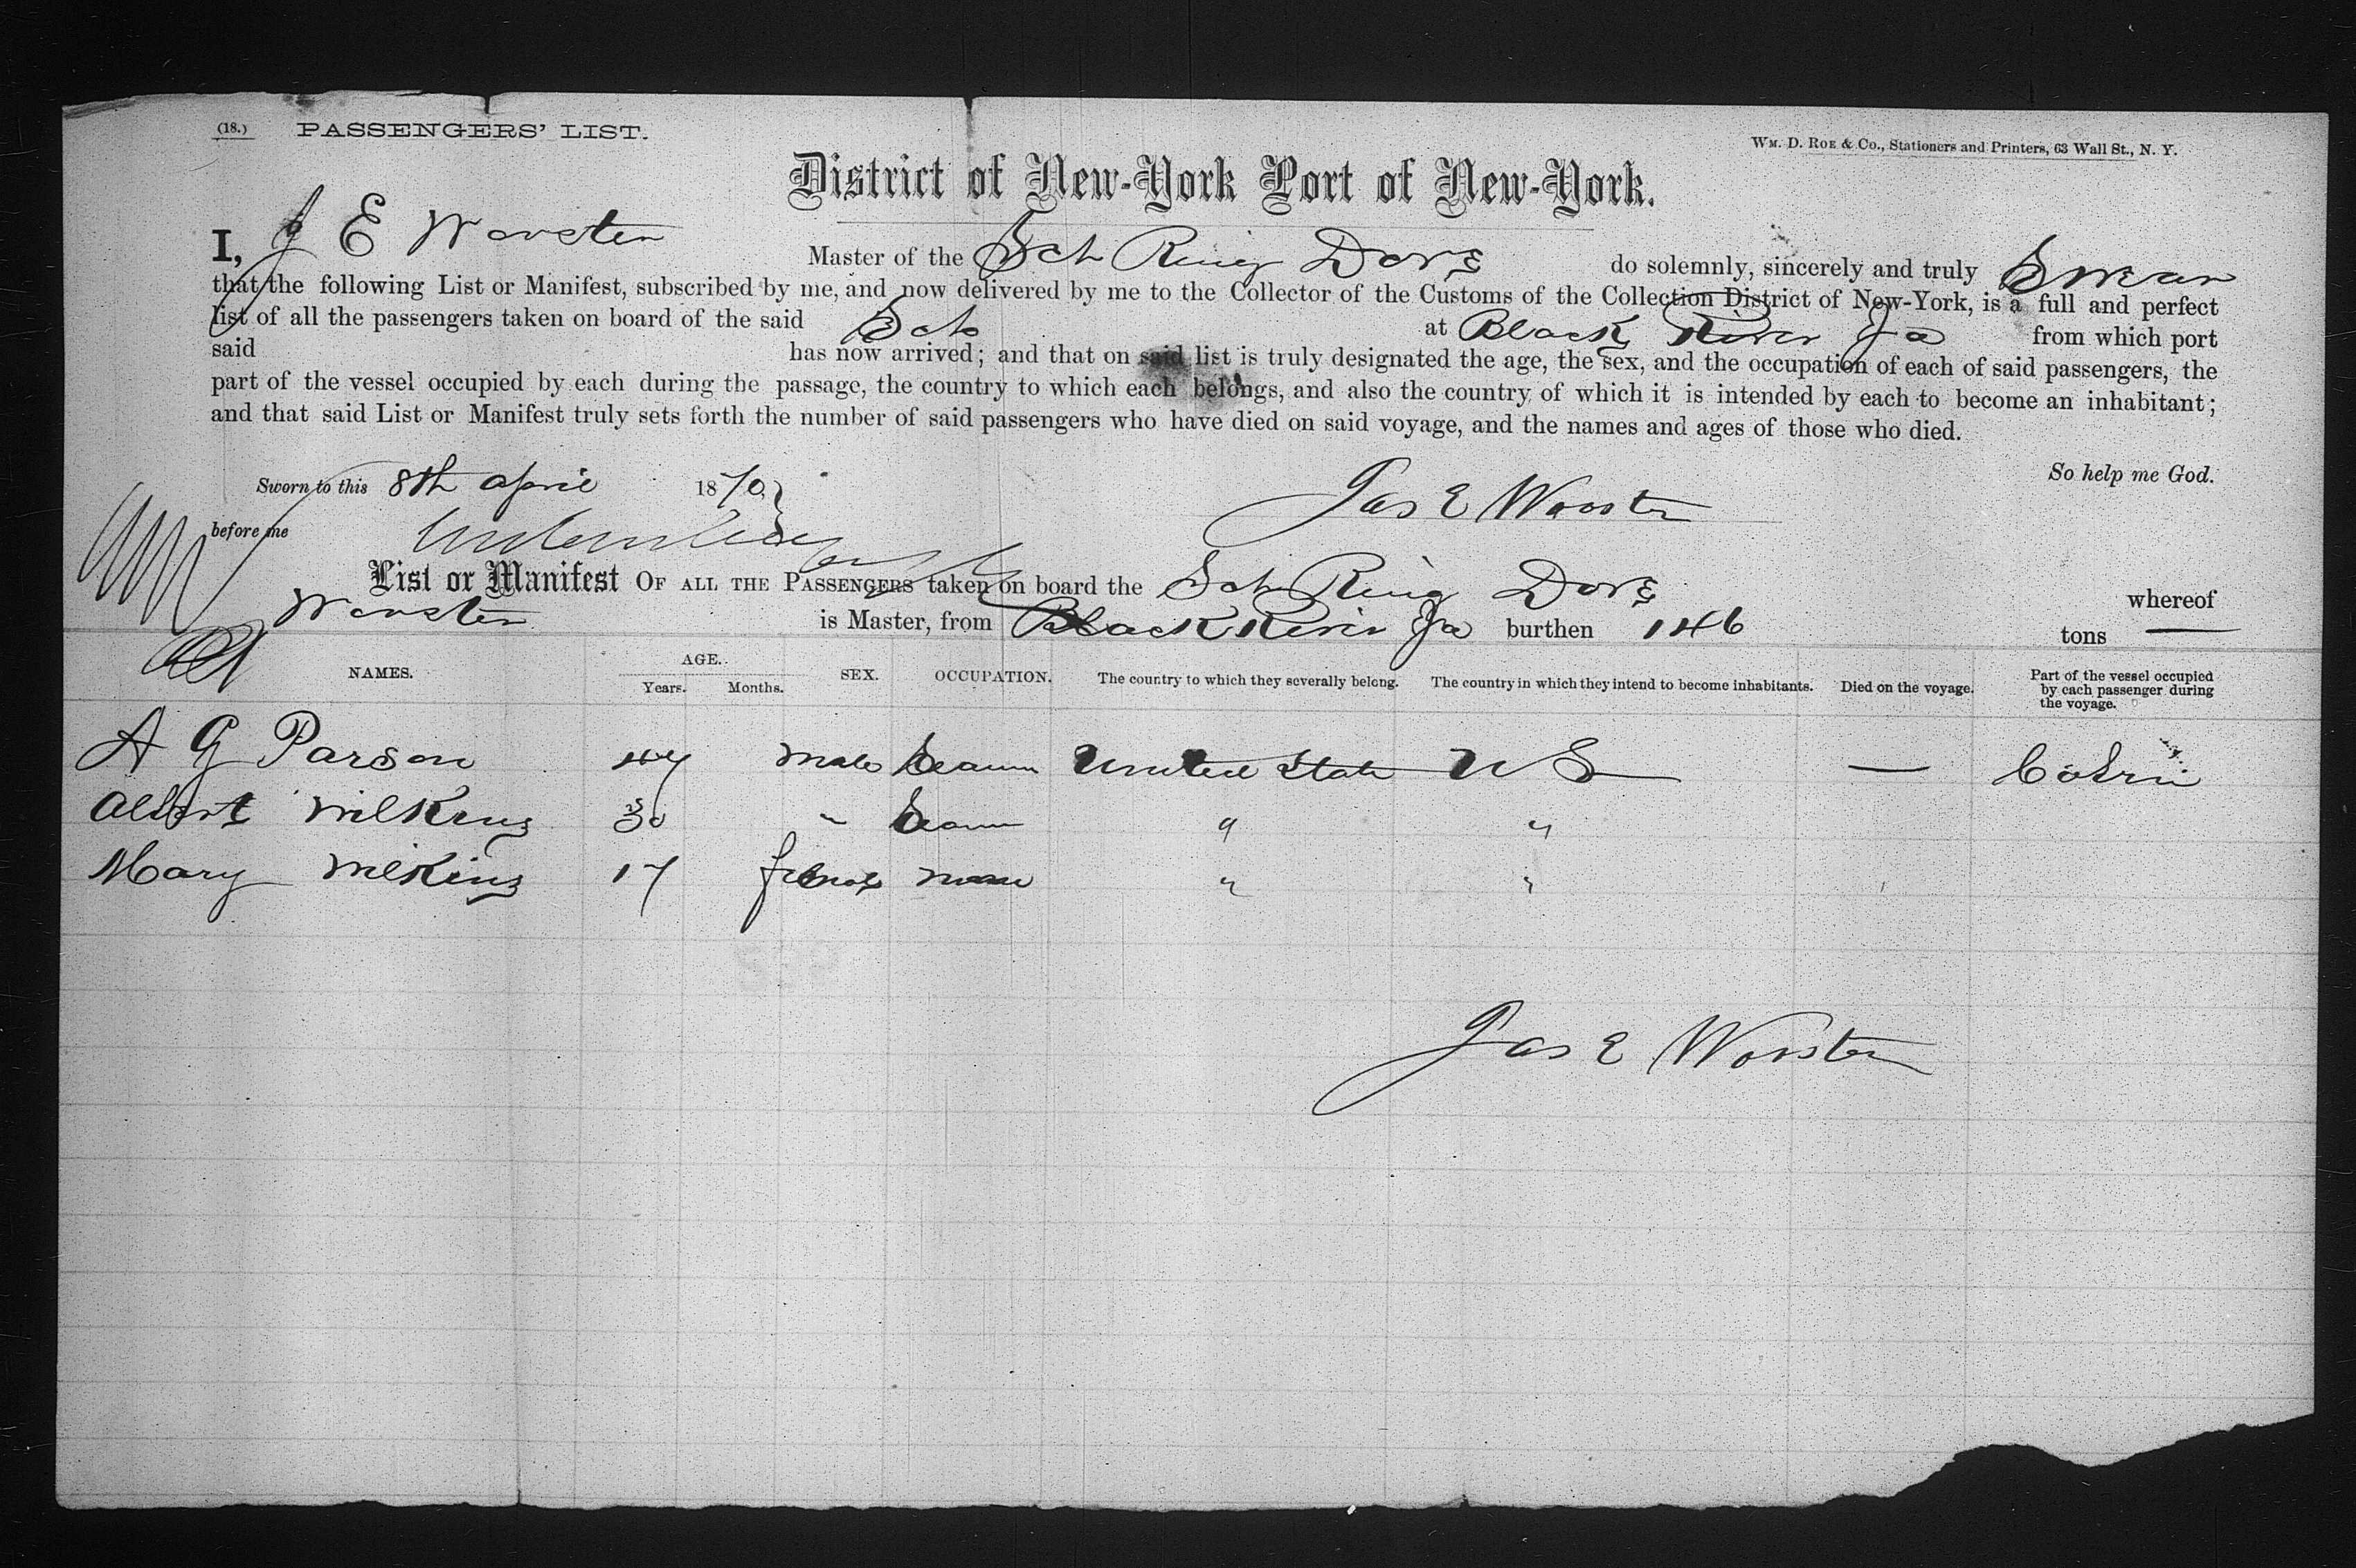 (18.) PASSENGERS' LIST.
WM. D. ROE & CO., Stationers and Printers, 63 Wall St., N. Y.
District of New-York Port of New-York.
I, J E Worster Master of the Sch Ring Dove do solemnly, sincerely and truly Swear
that the following List or Manifest, subscribed by me, and now delivered by me to the Collector of the Customs of the Collection District of New-York, is a full and perfect
list of all the passengers taken on board of the said Sch at Black River Ja from which port
said has now arrived; and that on said list is truly designated the age, the sex, and the occupation of each of said passengers, the
part of the vessel occupied by each during the passage, the country to which each belongs, and also the country of which it is intended by each to become an inhabitant;
and that said List or Manifest truly sets forth the number of said passengers who have died on said voyage, and the names and ages of those who died.
So help me God.
Sworn to this 8th april 1870
Jas E Worster
before me
List or Manifest OF ALL THE PASSENGERS taken on board the Sch Ring Dove whereof
Worster is Master, from Black River Ja burthen 146 tons —
NAMES. AGE. Years. Months. SEX. OCCUPATION. The country to which they severally belong. The country in which they intend to become inhabitants. Died on the voyage. Part of the vessel occupied by each passenger during the voyage.
A G Parson 47 male United State U S —
Albert Wilkins 30 " " "
Mary Wilkins 17 female none " "
Jas E Worster